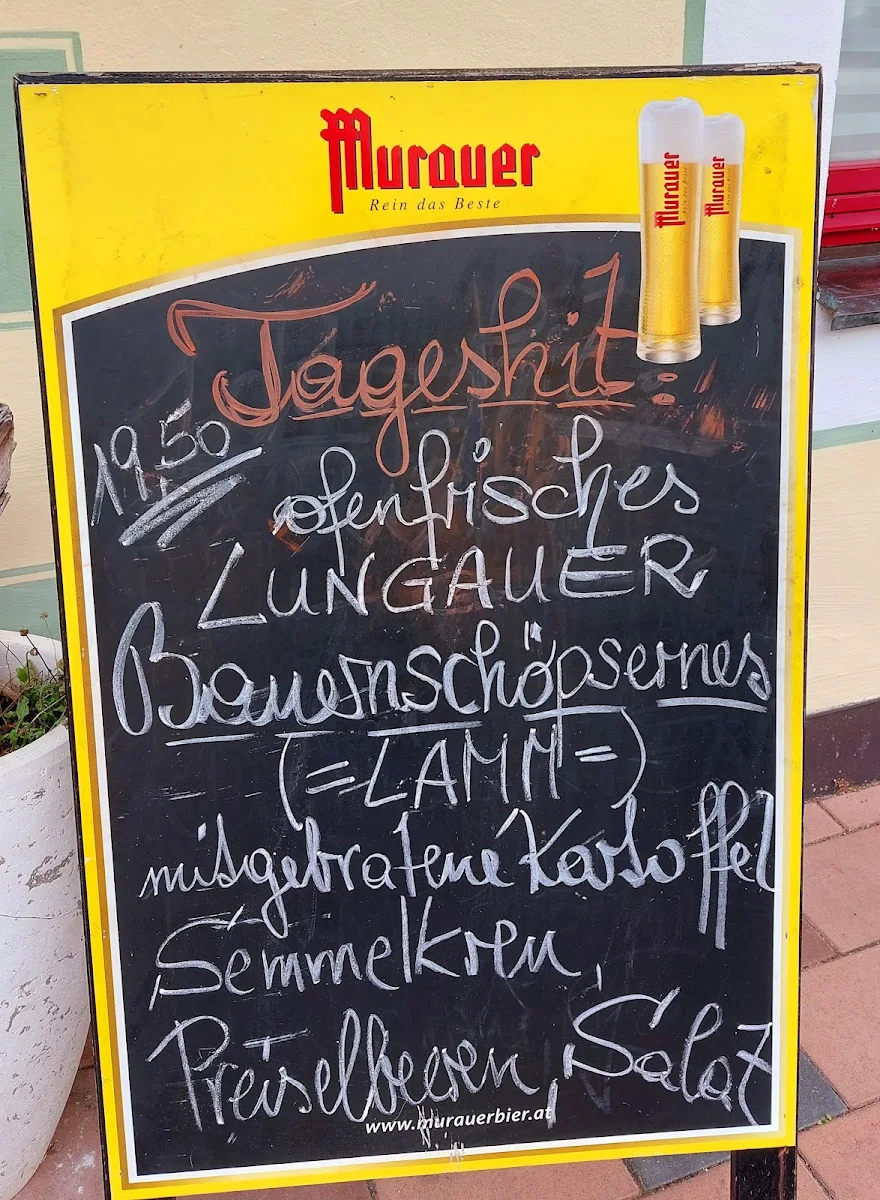 Murauer
Rein das Beste
Murauer
Murauer
Tageshit:
19,50
ofenfrisches
LUNGAUER
Bauernschöpsernes
(=LAMM=)
mitgebratene Kartoffel
Semmelkren,
Preiselbeeren, Salat
www.murauerbier.at